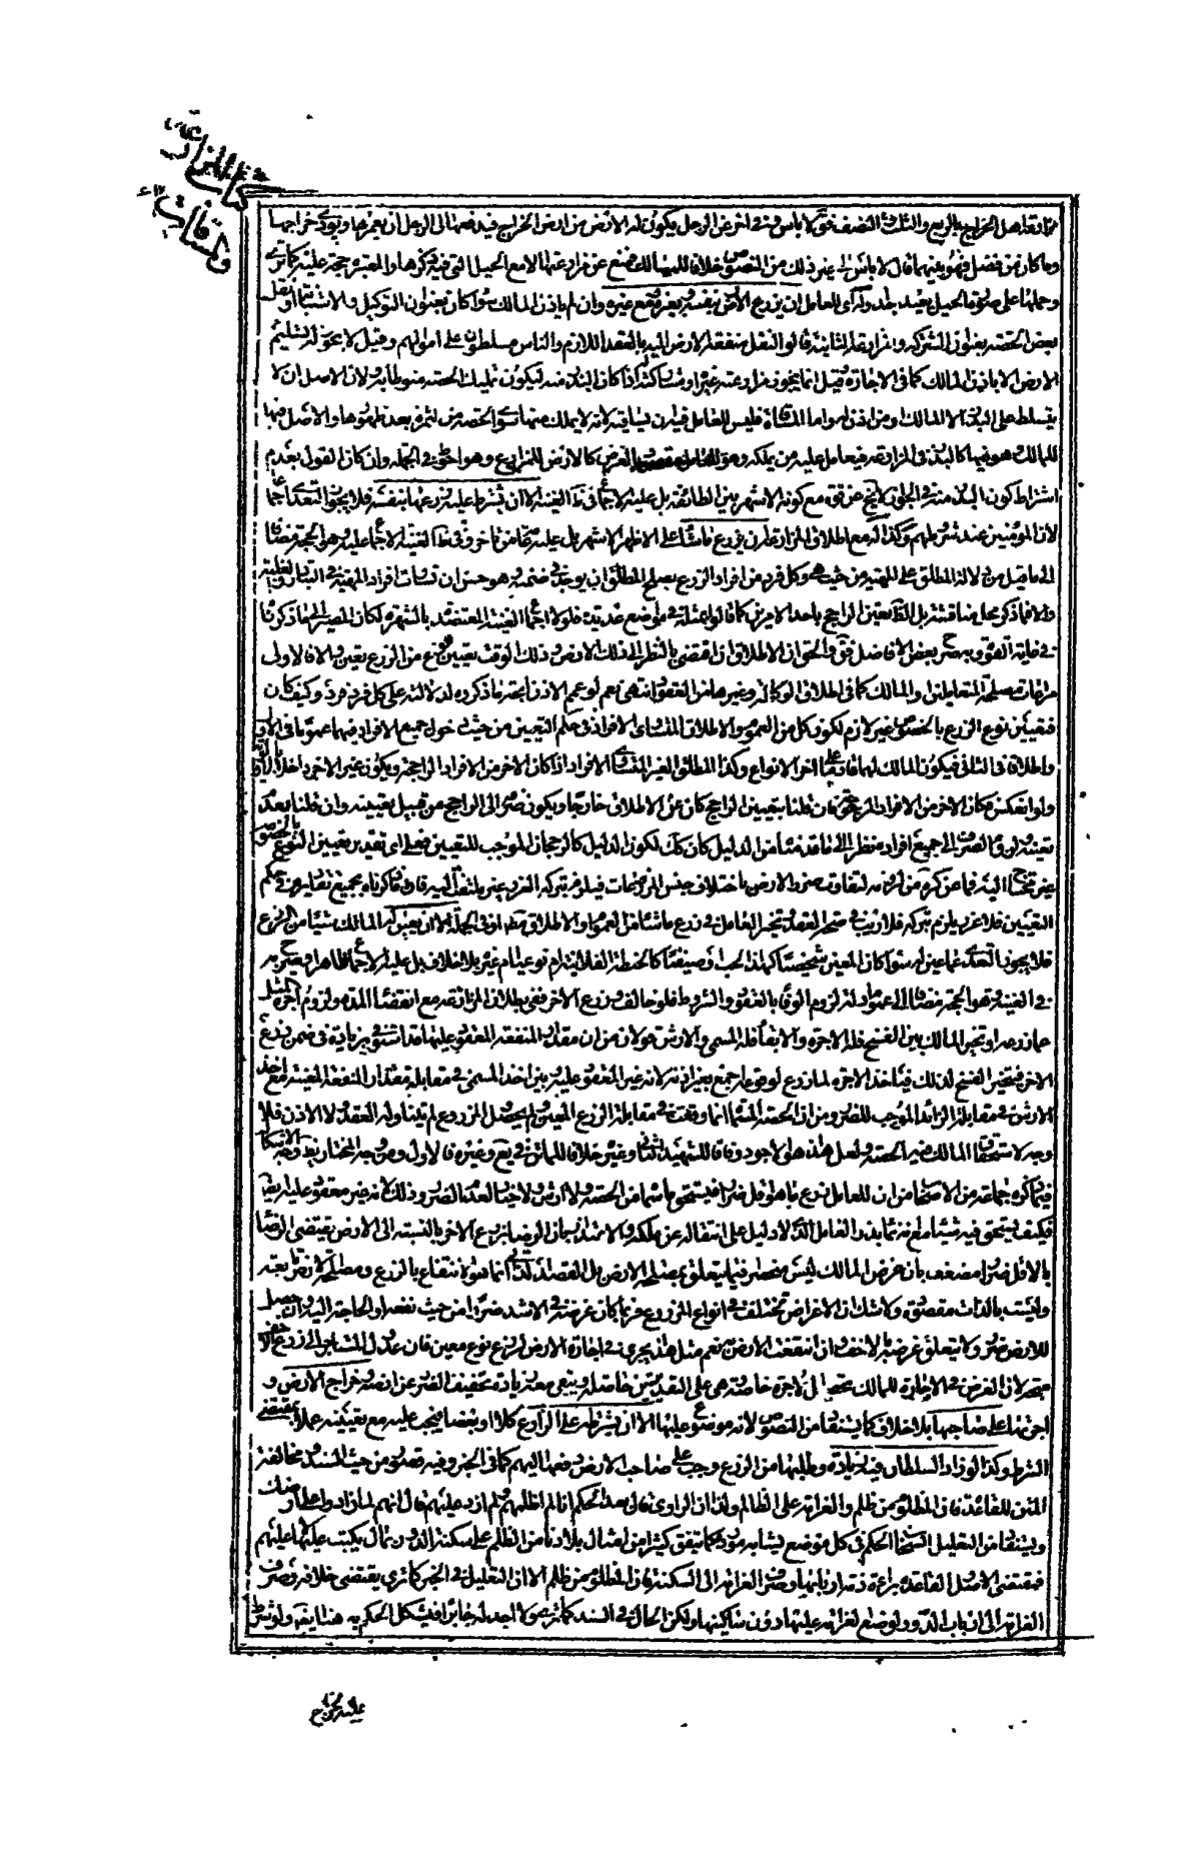 كتاب المزارعة
والمساقات
مزارعة اهل الخراج بالربع والثلث والنصف فق لا باس وفي اخر عن الرجل يكون له الارض من ارض الخراج فيدفعها الى الرجل ان يعمرها ويؤدي خراجها
وما كان من فضل فهو بينهما قال لا باس الى غير ذلك من النصوص خلافا للمسالك فمنع عن مزارعتها الا مع الحيل التي فيه ذكرها والمعتبرة حجة عليه كما ترى
وحملها على صورة الحيل بعيد جدا وله اي للعامل ان يزرع الارض بنفسه وبغيره ومع غيره وان لم ياذن المالك سواء كان بعنوان التوكيل والاستنابة او نقل
بعض الحصة بعنوان الشركة او مزارعة ثانية قالوا لنقل منفعة الارض اليه بالعقد اللازم والناس مسلطون على اموالهم وقيل لا يجوز له تسليم
الارض الا باذن المالك كما في الاجارة وقيل انما يجوز مزارعة غيره او مشاركته اذا كان البذر منه ليكون تمليك الحصة منوطا به لان الاصل ان لا
يتسلط على البذر الا المالك او من اذن له واما المساقاة فليس للعامل فيها ان يساقي لانه لا يملك منها سوى الحصة من الثمرة بعد ظهورها والاصل فيها
للمالك وهو فيها كالبذر في المزارعة فيعامل عليه من يملكه وهو الغرض كالارض للمزارع وهو احوط في الجملة وان كان القول بعدم
اشتراط كون البذر منه في الجواز لا يخ عن قوة مع كونه الاشهر بين الطائفة بل عليه الاجماع في الغنية الا ان يشترط عليه زرعها بنفسه فلا يجوز التعدي اجماعا
لان المؤمنين عند شروطهم وكذا له مع اطلاق المزارعة ان يزرع ما شاء على الاظهر الاشهر بل عليه عامة من تاخر وفي الغنية الاجماع عليه وهو الحجة مضافا
الى ما قيل من دلالة المطلق على الماهية من حيث هي وكل فرد من افراد الزرع يصلح ان يوجد المطلق في ضمنه وهو حسن ان تساوت افراد الماهية في التبادر والغلبة
والا فما ذكر محل مناقشة بل الظ تعين الراجح باحد الامرين كما قالوا بمثله في مواضع عديدة فلولا اجماع الغنية المعتضد بالشهرة لكان المصير الى ما ذكرنا
في غاية القوة وبه صرح بعض الافاضل فق والحق ان الاطلاق ان اقتضى بالنظر الى ذلك الارض وذلك الوقت تعيين نوع من الزرع تعين والا فالاولى
مراعات مصلحة المتعاملين او المالك كما في اطلاق الوكالة وغيرها من العقود انتهى نعم لو عمم الاذن اتجه ما ذكروه لدلالته على كل فرد فرد وكيف كان
فتعيين نوع الزرع بالخصوص غير لازم لكون كل من العموم والاطلاق المتساوي الافراد في حكم التعيين من حيث دخول جميع الافراد فيهما عموما في الاول
واطلاقا في الثاني فيكون المالك لهما قادما على اضر الانواع وكذا المطلق الغير المتساوي الافراد اذا كان الاضر من الافراد الراجحة ويكون غير الاضر داخلا بالاولوية
ولو انعكس فكان الاضر من الافراد المرجوحة فان قلنا بتعيين الراجح كان عن الاطلاق خارجا ويكون صرفه الى الراجح من قبيل تعيينه وان قلنا بعدم
تعينه وان الصرف الى جميع افراده نظرا الى ما قدمنا من الدليل كان كك لكون الدليل كالرجحان الموجب للتعيين فعلى اي تقدير تعيين النوع بالخصوص
غير محتاج اليه فما عن كره من لزومه لتفاوت ضرر الارض باختلاف جنس المزروعات فيلزم بتركه الغرر غير ملتفت اليه فان ما ذكرناه بجميع تقاديره في حكم
التعيين فلا غرر يلزم بتركه فلا ريب في صحة العقد وتخير العامل في زرع ما شاء من العموم او الاطلاق في الجملة الا ان يعين له المالك شيئا من الزرع
فلا يجوز التعدي عما عين له سواء كان المعين شخصيا كهذا الحب او صنفيا كالحنطة الفلانية ام نوعيا ام غيره بلا خلاف بل عليه الاجماع ظاهرا وصريح به
في الغنية وهو الحجة مضافا الى عموم ادلة لزوم الوفاء بالعقود والشروط فلو خالف وزرع الاضر ففي بطلان المزارعة مع انقضاء المدة ولزوم اجرة المثل
عما زرعه او تخير المالك بين الفسخ فله الاجرة والابقاء فله المسمى والارش قولان من ان مقدار المنفعة المعقود عليها قد استوفي بزيادة في ضمن زرع
الاضر فيتخير الفسخ لذلك فياخذ الاجرة لما زرع لوقوعه اجمع بغير اذنه لانه غير المعقود عليه وبين اخذ المسمى في مقابلة مقدار المنفعة المعينة مع اخذ
الارش في مقابلة الزائد الموجب للضرر ومن ان الحصة المسماة انما وقعت في مقابلة الزرع المعين ولم يحصل المزروع لم يتناوله العقد ولا الاذن فلا
وجه لاستحقاق المالك فيه الحصة ولعل هذا هو الاجود وفاقا للشهيد الثاني وغيره خلافا للماتن في يع وغيره فالاول ومن وجه المختار يظهر وجه الاشكال
فيما ذكره جماعة من الاصحاب من ان للعامل زرع ما هو اقل ضررا فيستحق ما سماه من الحصة ولا ارش ولا خيار لعدم الضرر وذلك لانه غير معقود عليه ايضا
فكيف يستحق فيه شيئا مع انه نماء بذر العامل الذي لا دليل على انتقاله عن ملكه والاعتذار بان الرضا بزرع الاضر بالنسبة الى الارض يقتضي الرضا
بالاقل ضررا مضعف بان غرض المالك ليس منحصرا فيما يتعلق بمصلحة الارض بل القصد الذاتي انما هو الانتفاع بالزرع ومصلحة الارض تابعة
وليست بالذات مقصودة ولا شك ان الاغراض تختلف في انواع المزروع فربما كان غرضه في الاشد ضررا من حيث نفعه او الحاجة اليه وان حصل
للارض ضرر ولا يتعلق غرضه بالاخف وان انتفعت الارض به نعم مثل هذا يجري في اجارة الارض لزرع نوع معين فان عدول المستاجر الى زرع اخف
متجه لان الغرض في الاجارة للمالك تحصيل الاجرة خاصة وهي على التقديرين حاصلة ويبقى معه زيادة تخفيف الضرر عن ارضه وخراج الارض و
اجرتها على صاحبها بلا خلاف كما يستفاد من النصوص لانه موضوع عليها الا ان يشترطه على الزارع كلا او بعضا فيجب عليه مع تعيينه عملا بمقتضى
الشرط وكذا لو زاد السلطان فيه زيادة وطلبها من الزرع وجب على صاحب الارض دفعها اليهم كما في الخبر وفيه قصور من حيث السند ومخالفة
المتن للقاعدة فان المظلوم من ظلم والغرامة على الظالم ولذا ان الراوي قال بعد الحكم انا لم اظلمهم ولم ازد عليهم قال انهم انما زادوا على ارضك
ويستفاد من التعليل انسحاب الحكم في كل موضع يشابه مورده كما يتفق كثيرا من امثال بلادنا من الظلم على سكنة الدور بمال يكتب عليها عليهم
فمقتضى الاصل القاعدة براءة ذمة اربابها وصرف الغرامة الى السكنة فان المظلوم من ظلم الا ان التعليل في الخبر كما ترى يقتضي خلافه وصرف
الغرامة الى ارباب الدور لوضع الغرامة عليها دون ساكنيها ولكن الحال في السند كما ترى ولا اجد له جابرا فيشكل الحكم به هنا ايضا ولو شرط
عليه خروج